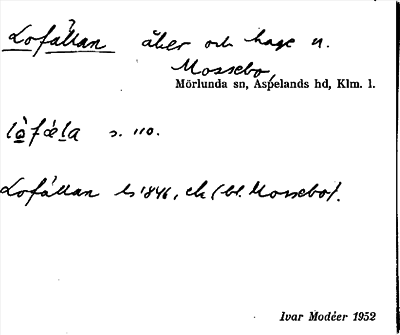 Lofállan åker och hage n.
Mossebo,
Mörlunda sn, Aspelands hd, Klm. l.
lo̱fæḻa s. 110.
Lofállan ls 1846, ek (bl. Mossebo).
Ivar Modéer 1952